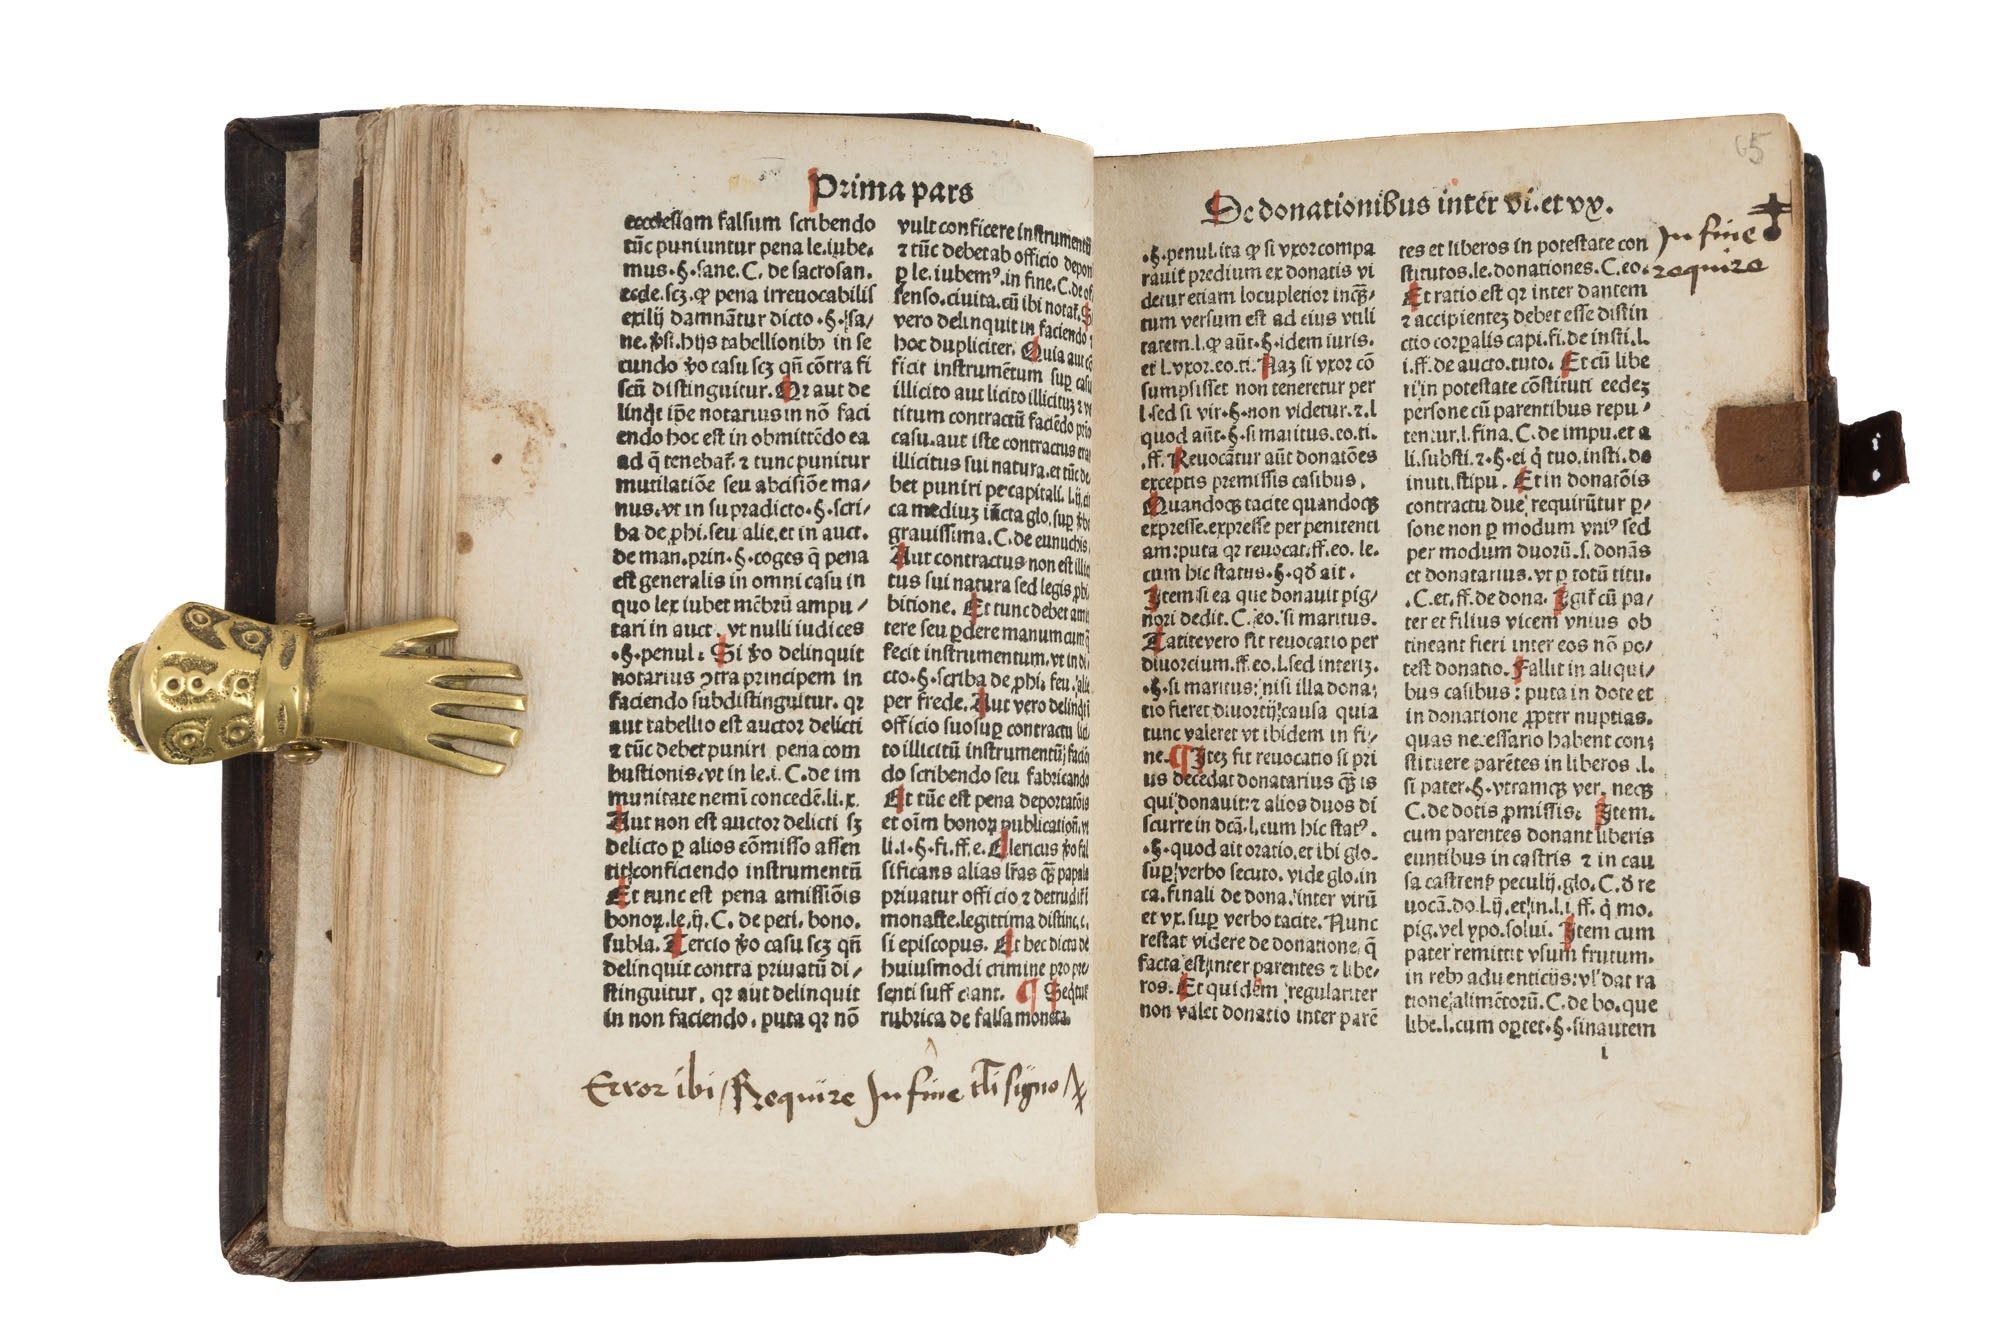 Prima pars
ecclesiam falsum scribendo
tūc puniuntur pena le. iube-
mus. §. sane. C. de sacrosan.
eccle. scꝫ. ꝙ pena irreuocabilis
exilij damnātur dicto. §. sa/
ne. ꝟsi. hijs tabellionibꝰ in se
cundo ꝟo casu scꝫ qn̄ cōtra fi
scū distinguitur. Qr aut de
linqt ip̄e notarius in nō faci
endo hoc est in obmittēdo ea
ad q̄ tenebat᷑. ⁊ tunc punitur
mutilatiōe seu abcisiōe ma-
nus. vt in supradicto. §. scri-
ba de ꝓhi. feu. alie. et in auct.
de man. prin. §. coges q̄ pena
est generalis in omni casu in
quo lex iubet mēbrū ampu/
tari in auct. vt nulli iudices
.§. penul. Si ꝟo delinquit
notarius ↄtra principem in
faciendo subdistinguitur. qr
aut tabellio est auctor delicti
⁊ tūc debet puniri pena com
bustionis. vt in le. i. C. de im
munitate nemī concedē. li. x.
Aut non est auctor delicti sꝫ
delicto ꝑ alios cōmisso assen
tit conficiendo instrumentū
Et tunc est pena amissiōis
bonoꝝ. le. ij. C. de peti. bono.
subla. Tercio ꝟo casu scꝫ qn̄
delinquit contra priuatū di-
stinguitur, qr aut delinquit
in non faciendo. puta qr nō
vult conficere instrumentū
⁊ tūc debet ab officio deponi
ꝑ le. iubemꝰ. in fine. C. de of
fenso. ciuita. cū ibi notat᷑. Si
vero delinquit in faciendo
hoc dupliciter. Quia aut cō
ficit instrumētum suꝑ casu
illicito aut licito illicituꝫ ⁊ ve
titum contractū faciēdo prīo
casu. aut iste contractus erat
illicitus sui natura. et tūc de
bet puniri pe capitali. l. ij. ci
ca mediuꝫ iūcta glo. suꝑ ꝟbo
grauissima. C. de eunuchis.
Aut contractus non est illici
tus sui natura sed legis ꝓhi
bitione. Et tunc debet amit
tere seu ꝑdere manum cum q̄
fecit instrumentum. vt in di
cto. §. scriba de ꝓhi. feu. alie
per frede. Aut vero delinqt i
officio suo suꝑ contractu lici
to illicitū instrumentū facien
do scribendo seu fabricando
Et tūc est pena deportatōis
et oīm bonoꝝ publicatiōn. vt
li. i. §. fi. ff. e. Clericus ꝟo fal
sificans alias lr̄as q̄ꝫ papales
priuatur officio ⁊ detrudit᷑ i
monaste. legittima distinc. c.
si episcopus. Et hec dicta de
huiusmodi crimine pro pre-
senti sufficiant. ¶ Seq̄tur
rubrica de falsa moneta.
Error ibi / Require In fine tli signo /
65
De donationibus inter vi. et vx.
.§. penul. ita ꝙ si vxor compa
rauit predium ex donatis vi
detur etiam locupletior inq̄ꝫ/
tum versum est ad eius vtili
tatem. l. ꝙ aūt. §. idem iuris.
et l. vxor. eo. ti. Naꝫ si vxor cō
sumpsisset non teneretur per
l. sed si vir. §. non videtur. ⁊ l
quod aūt. §. si maritus. eo. ti.
.ff. Reuocātur aūt donatōes
exceptis premissis casibus.
Quandoqꝫ tacite quandoqꝫ
expresse. expresse per penitenti
am: puta qr reuocat. ff. eo. le.
cum hic status. §. qd̄ ait.
Item si ea que donauit pig/
nori dedit. C. eo. si maritus.
Tacite vero fit reuocatio per
diuorcium. ff. eo. l. sed interiꝫ.
.§. si maritus: nisi illa dona/
tio fieret diuortij causa quia
tunc valeret vt ibidem in fi/
ne. ¶ Iteꝫ fit reuocatio si pri
us decedat donatarius q̄ꝫ is
qui donauit: ⁊ alios duos di
scurre in dcā. l. cum hic statꝰ.
.§. quod ait oratio. et ibi glo.
suꝑ verbo secuto. vide glo. in
ca. finali de dona. inter virū
et vx. suꝑ verbo tacite. Nunc
restat videre de donatione q̄
facta est inter parentes ⁊ libe-
ros. Et quidem regulariter
non valet donatio inter parē
tes et liberos in potestate con
stitutos. le. donationes. C. eo.
Et ratio est qr inter dantem
⁊ accipienteꝫ debet esse distin
ctio corꝑalis capi. fi. de insti. l.
i. ff. de aucto. tuto. Et cū libe
ri in potestate cōstituti eedeꝫ
persone cū parentibus repu/
tentur. l. fina. C. de impu. et a
li. substi. ⁊. §. ei q̇ tuo. insti. de
inuti. stipu. Et in donatōis
contractu due requirūtur ꝑ-
sone non ꝑ modum vniꝰ sed
per modum duorū. s. donās
et donatarius. vt ꝑ totū titu.
.C. et. ff. de dona. Igit᷑ cū pa/
ter et filius vicem vnius ob
tineant fieri inter eos nō po-
test donatio. Fallit in aliqui/
bus casibus: puta in dote et
in donatione ꝓpter nuptias.
quas necessario habent con-
stituere parētes in liberos. l.
si pater. §. vtramqꝫ ver. neqꝫ
C. de dotis ꝓmissis. Item.
cum parentes donant liberis
euntibus in castris ⁊ in cau
sa castrenẜ peculij. glo. C. d̄ re
uocā. do. l. ij. et in. l. i. ff. q̇ mo.
pig. vel ypo. solui. Item cum
pater remittit vsum frutum.
in rebꝰ aduenticijs: vl' dat ra
tione alimētorū. C. de bo. que
libe. l. cum oꝑtet. §. sin autem
i
In fine
require